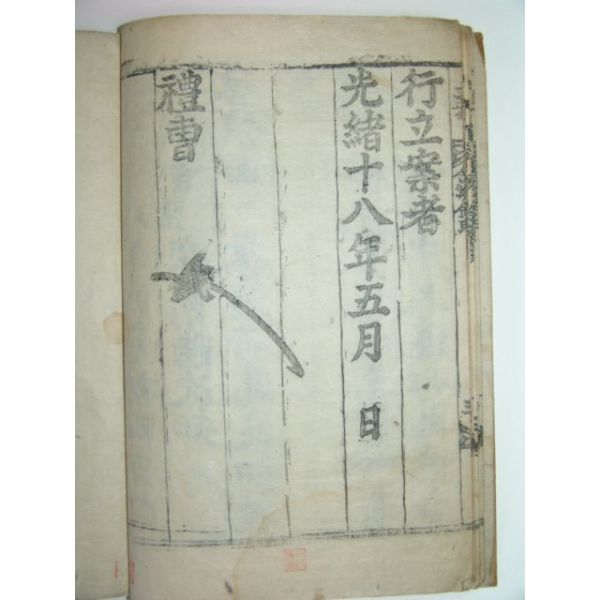 行立案者
光緖十八年五月　日
禮曹